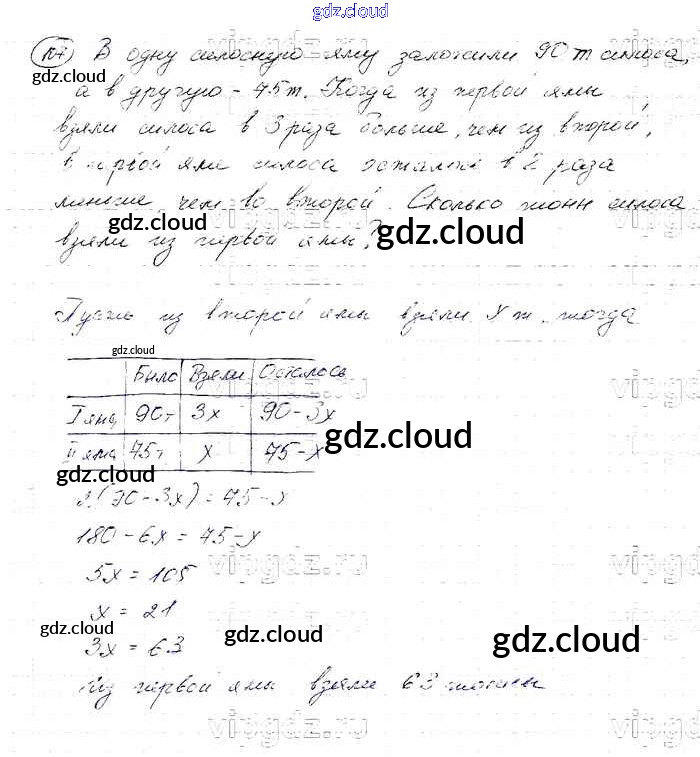 gdz.cloud
157 В одну силосную яму заложили 90 т силоса,
gdz.cloud
а в другую - 75 т. Когда из первой ямы
gdz.cloud
взяли силоса в 3 раза больше, чем из второй,
в первой яме силоса осталось в 2 раза
меньше, чем во второй. Сколько тонн силоса
vipgdz.ru
gdz.cloud
взяли из первой ямы?
gdz.cloud
Пусть из второй ямы взяли x т. тогда
gdz.cloud
Было Взяли Осталось
vipgdz.ru
I яма 90т 3x 90-3x
gdz.cloud
II яма 75т x 75-x
gdz.cloud
2(90-3x)=75-x
180-6x=75-x
5x=105
vipgdz.ru
x=21
gdz.cloud
gdz.cloud
gdz.cloud
3x=63
Из первой ямы взяли 63 тонны
vipgdz.ru